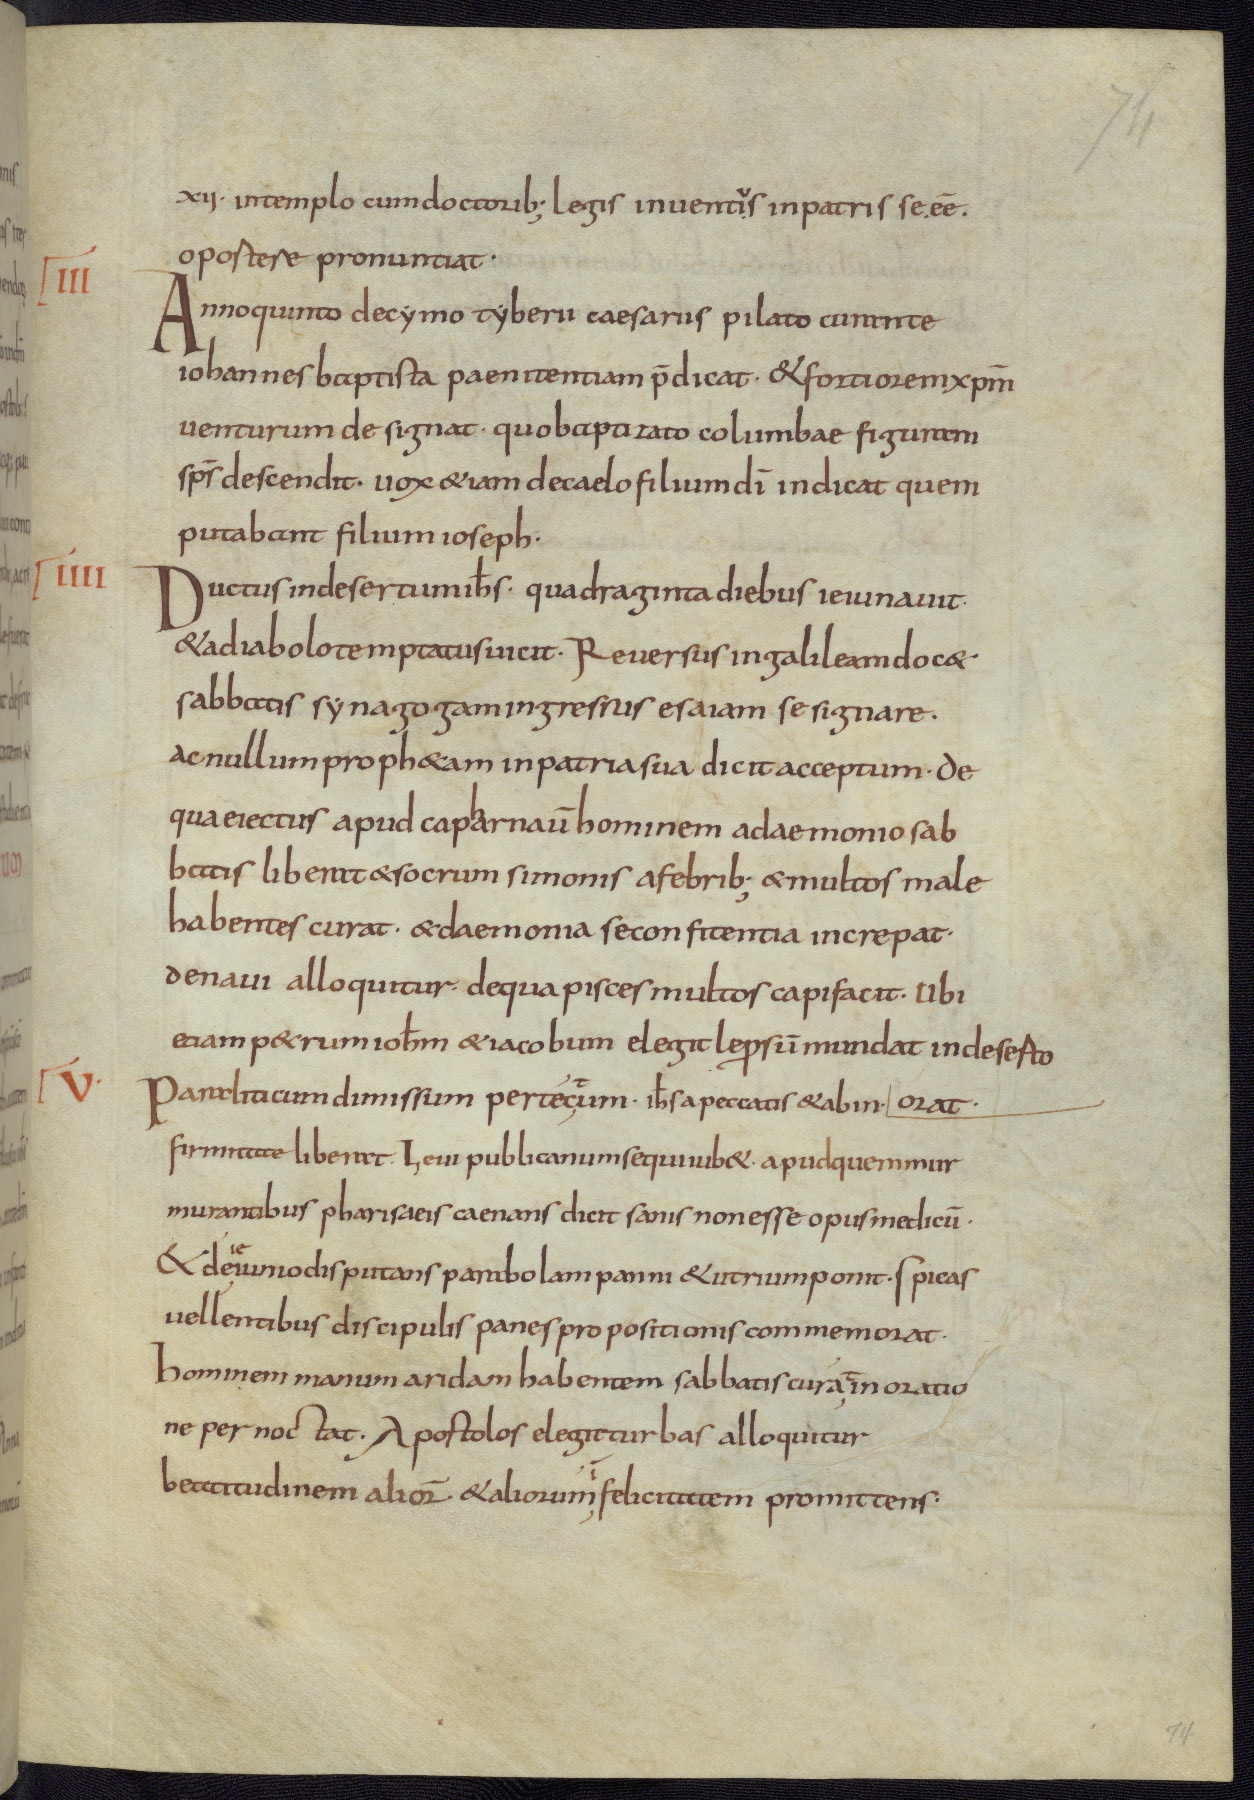 74
xii· intemplo cumdoctorib; legis inventus inpatris se eē·
oportere pronuntiat·
III
Annoquinto decymo tyberii caesarus pilato curante
iohannes baptista paenitentiam p̄dicat· &fortioremxpm̄
uenturum designat· quobaptizato columbae figuram
sp̄s descendit· uox &iam decaelo filiumdī indicat quem
putabant filium ioseph·
IIII
Ductus indesertum ih̄s· quadraginta diebus ieiunauit·
&adiabolotemptatus uicit· Reuersus ingalileam doc&·
sabbatis synagogam ingressus esaiam se signare·
ac nullum proph&am inpatria sua dicit acceptum· de
qua eiectus apud capharnaū hominem adaemonio sab
batis liberat &socrum simonis afebrib; &multos male
habentes curat· &daemonia seconfitentia increpat·
denaui alloquitur· dequa pisces multos capi facit· Ubi
etiam p&rum ioh̄m &iacobum elegit leprosū mundat indeserto
V·
Paraliticum dimissum pertectum· ih̄s apeccatis &abin· orat·
firmitate liberat· Leui publicanum sequi iub&· apud quem mur
murantibus pharisaeis caenans dicit sanis non esse opus medicū·
& de ieiunio disputans parabolam panni &utrium ponit· Spicas
uellentibus discipulis panes propositionis commemorat·
hominem manum aridam habentem sabbatis curat in oratio
ne pernoctat· Apostolos elegit turbas alloquitur
beatitudinem alior̄ &aliorum felicitatem promittens·
74